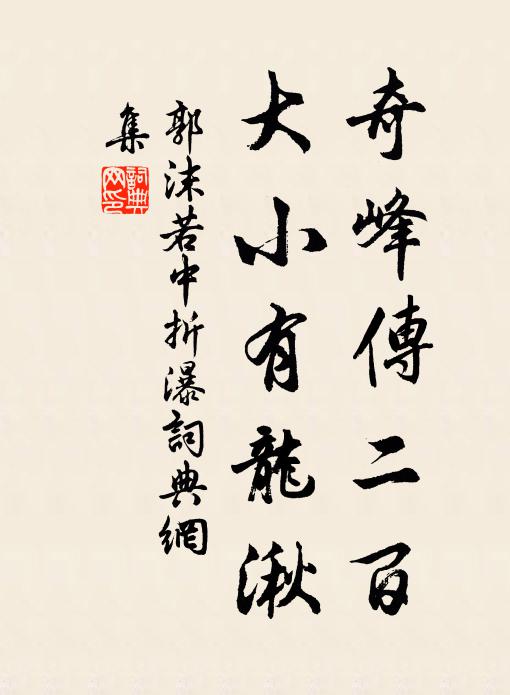 奇峰傳二百
大小有龍湫
郭沫若中折瀑詞典網
集
詞典網印